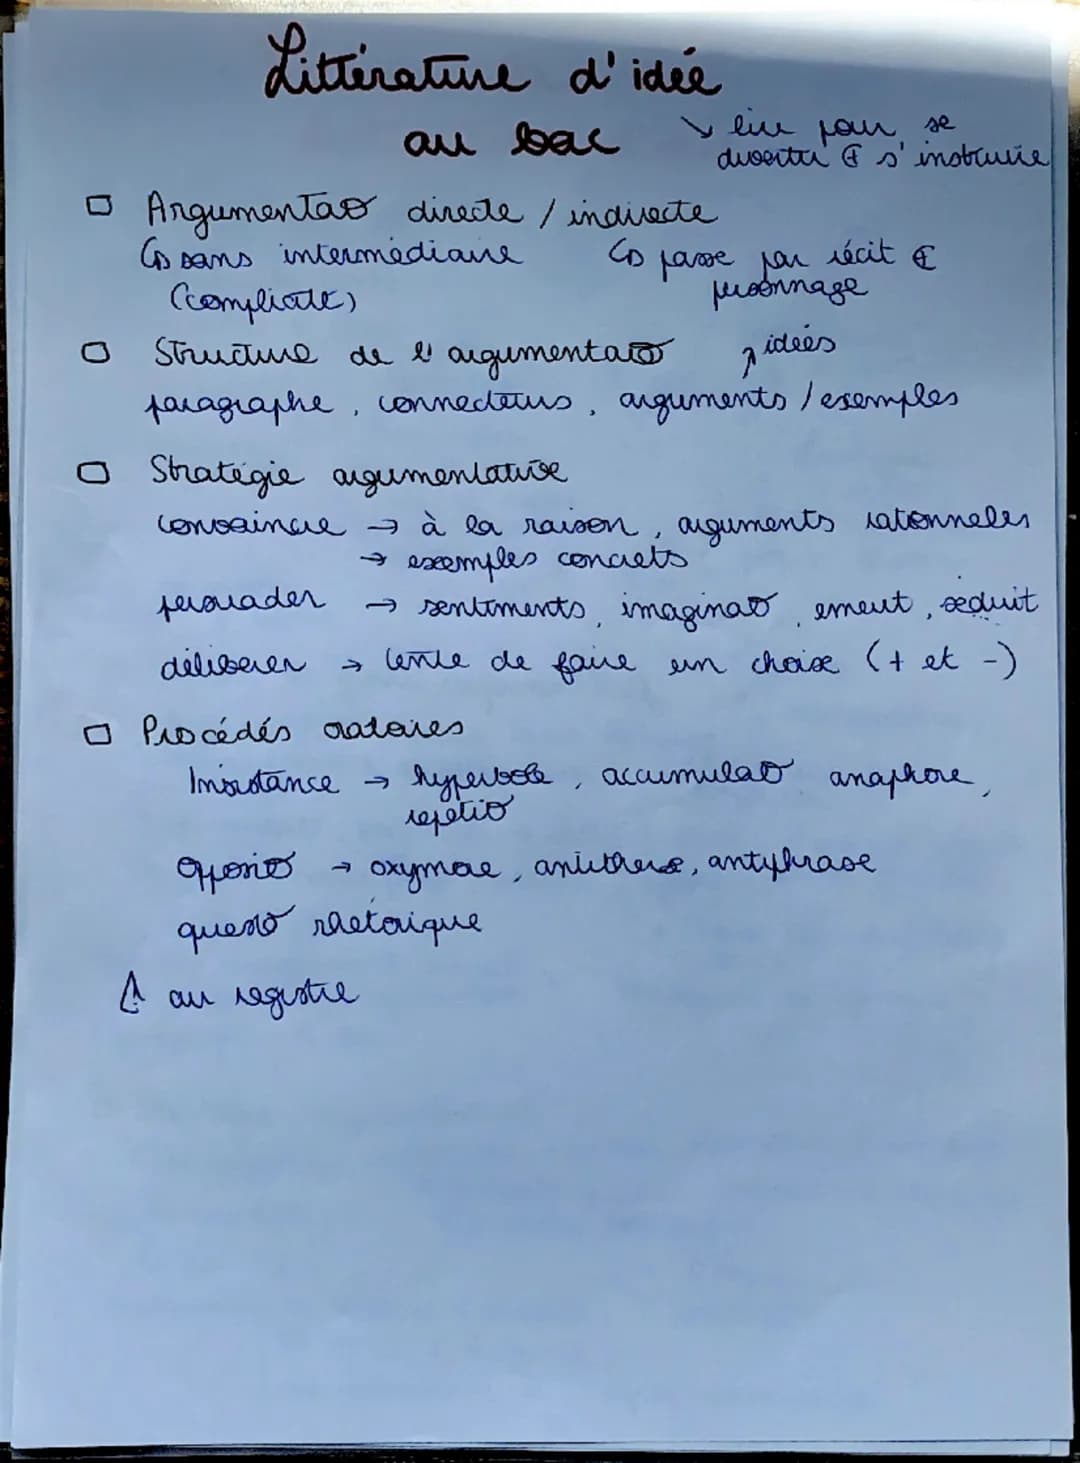 Littérature d'idée
au bac
↘ lire pour se
divertir et s'instruire
□ Argumentao directe / indirecte
↳ sans intermédiaire ↳ passe par récit et
(complicité) personnage
□ Structure de l'argumentao ↗ idées
paragraphe, connecteurs, arguments / exemples
□ Stratégie argumentative
convaincre → à la raison, arguments rationneles
→ exemples concrets
persuader → sentiments, imaginao, émeut, séduit
délibérer → tente de faire un choix (+ et -)
□ Procédés oratoires
Insistance → hyperbole, accumulao anaphore,
répétio
opposio → oxymore, antithèse, antiphrase
questo rhétorique
⚠ au registre